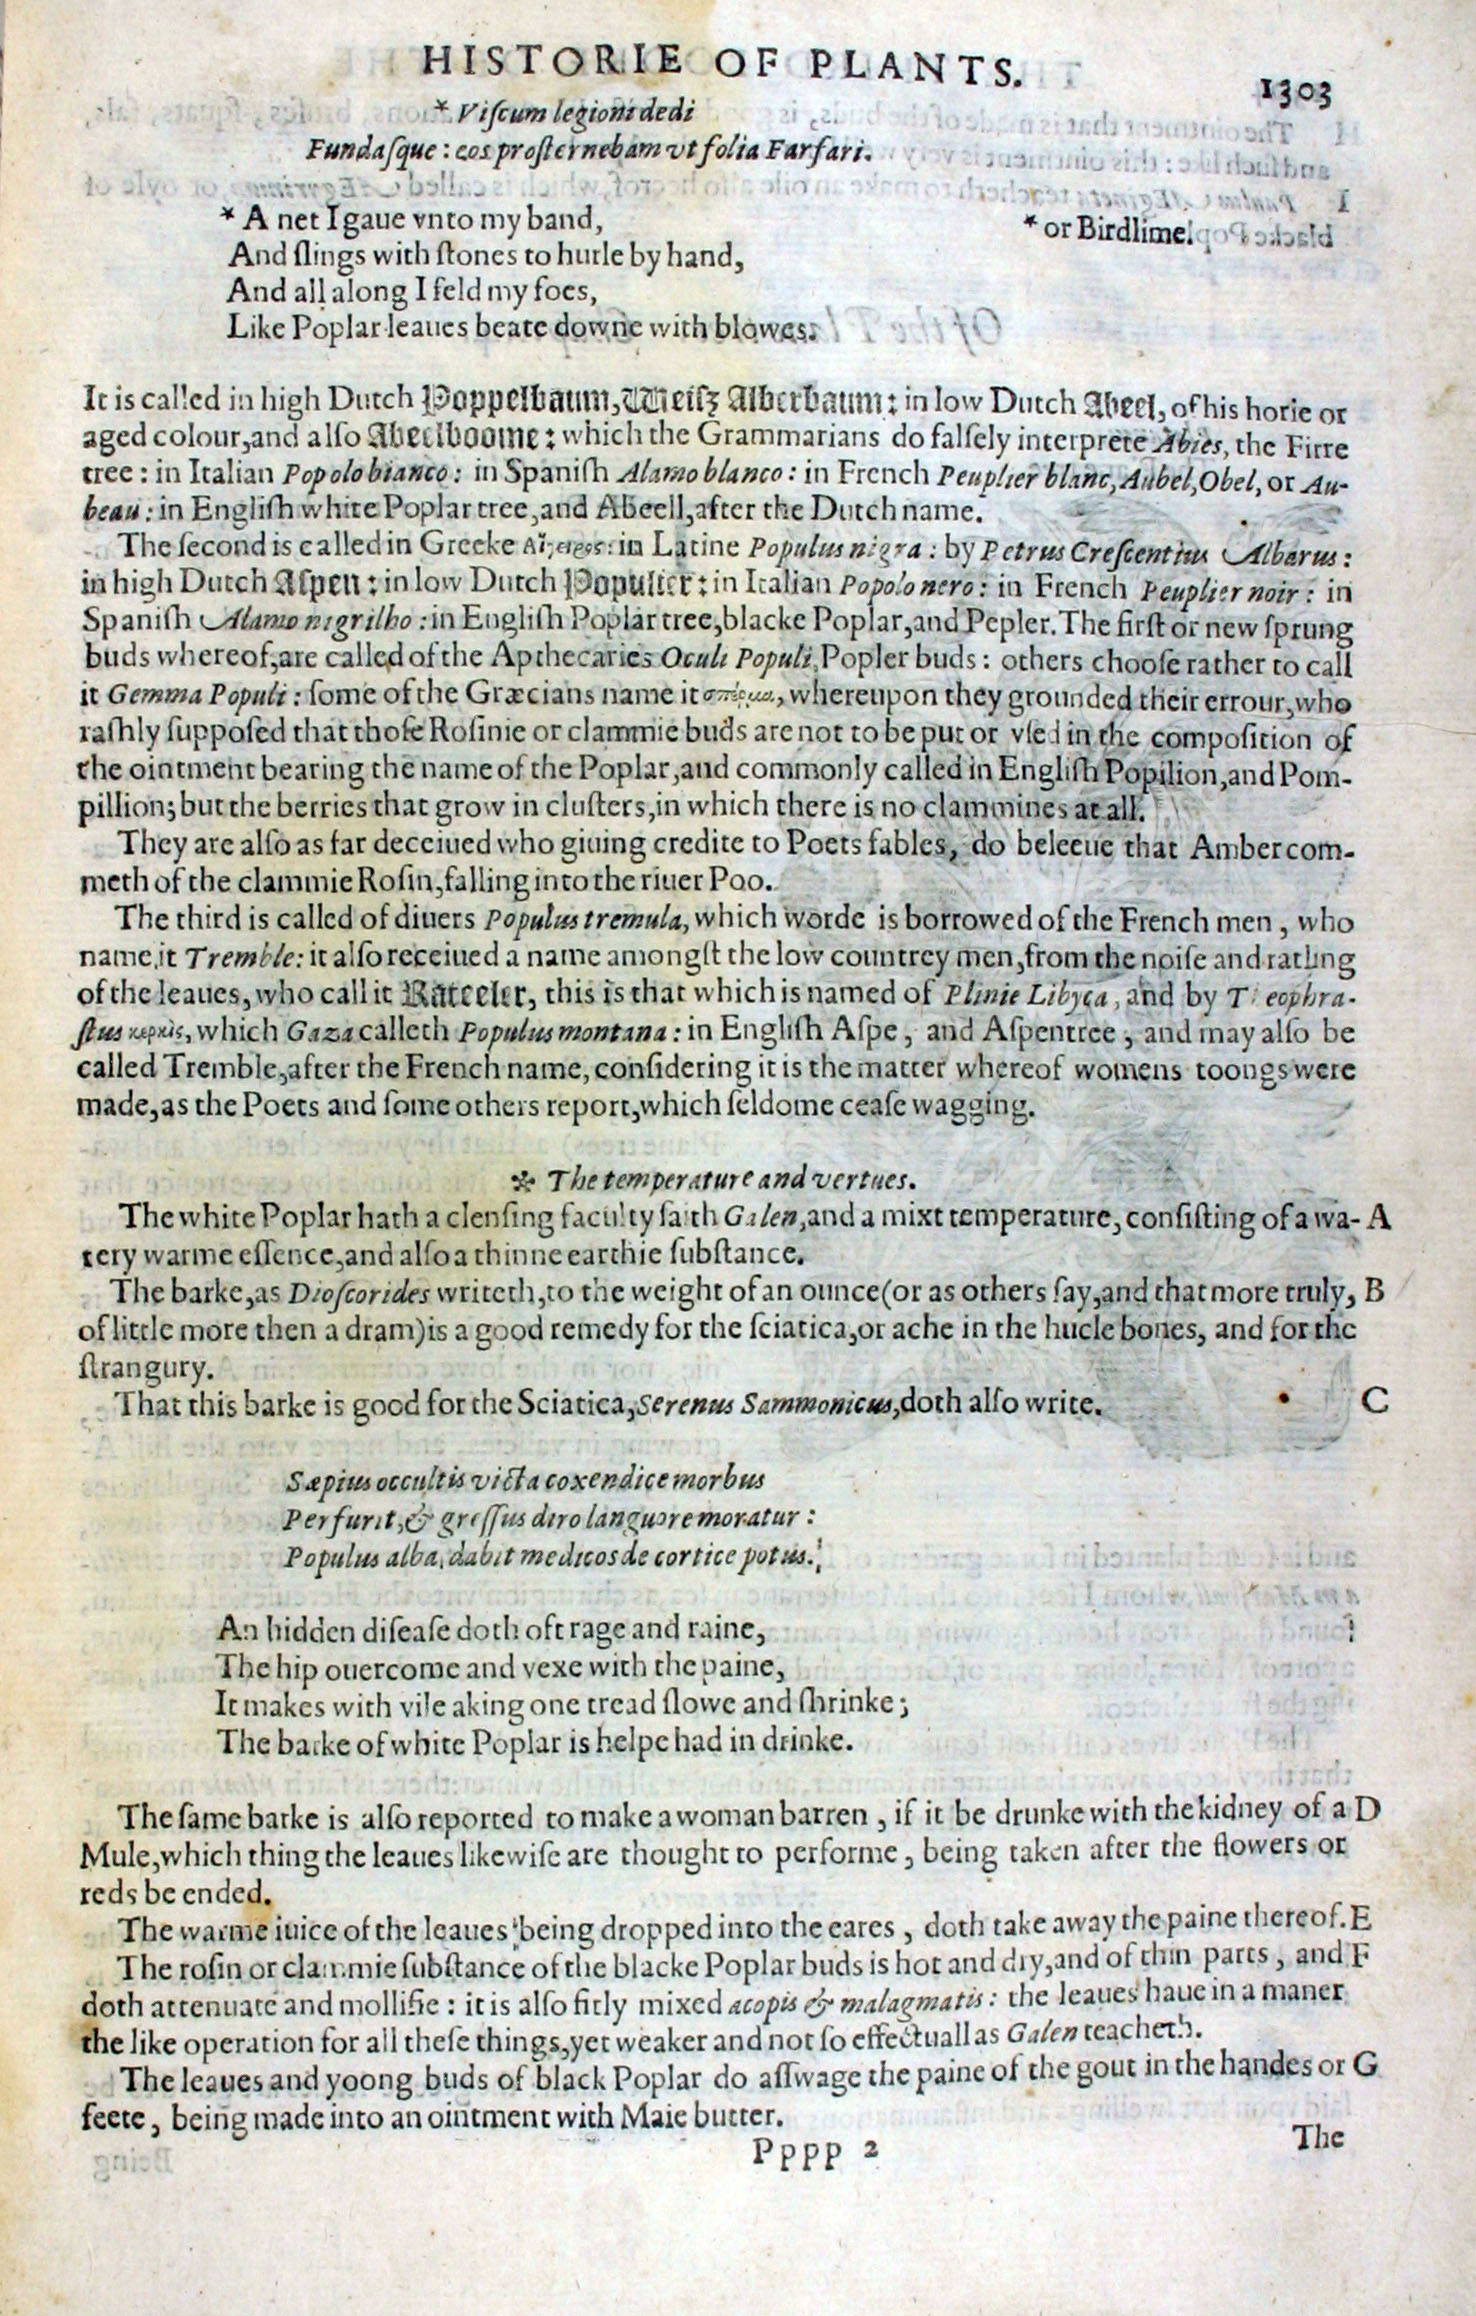 HISTORIE OF PLANTS.
1303
* Viſcum legioni dedi
Fundaſque: eos proſternebam vt folia Farfari.
* A net I gaue vnto my band,
* or Birdlime.
And ſlings with ſtones to hurle by hand,
And all along I feld my foes,
Like Poplar leaues beate downe with blowes.
It is called in high Dutch Poppelbaum, Weiſz Alberbaum: in low Dutch Abeel, of his horie or
aged colour, and alſo Abeelboome: which the Grammarians do falſely interprete Abies, the Firre
tree: in Italian Popolo bianco: in Spaniſh Alamo blanco: in French Peuplier blanc, Aubel, Obel, or Au-
beau: in Engliſh white Poplar tree, and Abeell, after the Dutch name.
The ſecond is called in Greeke Αἴγειρος: in Latine Populus nigra: by Petrus Creſcentius Albarus:
in high Dutch Aſpen: in low Dutch Populier: in Italian Popolo nero: in French Peuplier noir: in
Spaniſh Alamo nigrilho: in Engliſh Poplar tree, blacke Poplar, and Pepler. The firſt or new ſprung
buds whereof, are called of the Apthecaries Oculi Populi, Popler buds: others chooſe rather to call
it Gemma Populi: ſome of the Græcians name it σπέρμα, whereupon they grounded their errour, who
raſhly ſuppoſed that thoſe Roſinie or clammie buds are not to be put or vſed in the compoſition of
the ointment bearing the name of the Poplar, and commonly called in Engliſh Popilion, and Pom-
pillion; but the berries that grow in cluſters, in which there is no clammines at all.
They are alſo as far deceiued who giuing credite to Poets fables, do beleeue that Amber com-
meth of the clammie Roſin, falling into the riuer Poo.
The third is called of diuers Populus tremula, which worde is borrowed of the French men, who
name it Tremble: it alſo receiued a name amongſt the low countrey men, from the noiſe and ratling
of the leaues, who call it Rateeler, this is that which is named of Plinie Libyca, and by Theophra-
ſtus κερκὶς, which Gaza calleth Populus montana: in Engliſh Aſpe, and Aſpen tree, and may alſo be
called Tremble, after the French name, conſidering it is the matter whereof womens toongs were
made, as the Poets and ſome others report, which ſeldome ceaſe wagging.
* The temperature and vertues.
The white Poplar hath a clenſing faculty ſaith Galen, and a mixt temperature, conſiſting of a wa- A
tery warme eſſence, and alſo a thinne earthie ſubſtance.
The barke, as Dioſcorides writeth, to the weight of an ounce (or as others ſay, and that more truly, B
of little more then a dram) is a good remedy for the ſciatica, or ache in the hucle bones, and for the
ſtrangury.
That this barke is good for the Sciatica, Serenus Sammonicus, doth alſo write. C
Sæpius occultis victa coxendice morbus
Perfurit, & greſſus diro languore moratur:
Populus alba, dabit medicos de cortice potus.
An hidden diſeaſe doth oft rage and raine,
The hip ouercome and vexe with the paine,
It makes with vile aking one tread ſlowe and ſhrinke;
The barke of white Poplar is helpe had in drinke.
The ſame barke is alſo reported to make a woman barren, if it be drunke with the kidney of a D
Mule, which thing the leaues likewiſe are thought to performe, being taken after the flowers or
reds be ended.
The warme iuice of the leaues being dropped into the eares, doth take away the paine thereof. E
The roſin or clammie ſubſtance of the blacke Poplar buds is hot and dry, and of thin parts, and F
doth attenuate and mollifie: it is alſo fitly mixed acopis & malagmatis: the leaues haue in a maner
the like operation for all theſe things, yet weaker and not ſo effectuall as Galen teacheth.
The leaues and yoong buds of black Poplar do aſſwage the paine of the gout in the handes or G
feete, being made into an ointment with Maie butter.
Pppp 2
The